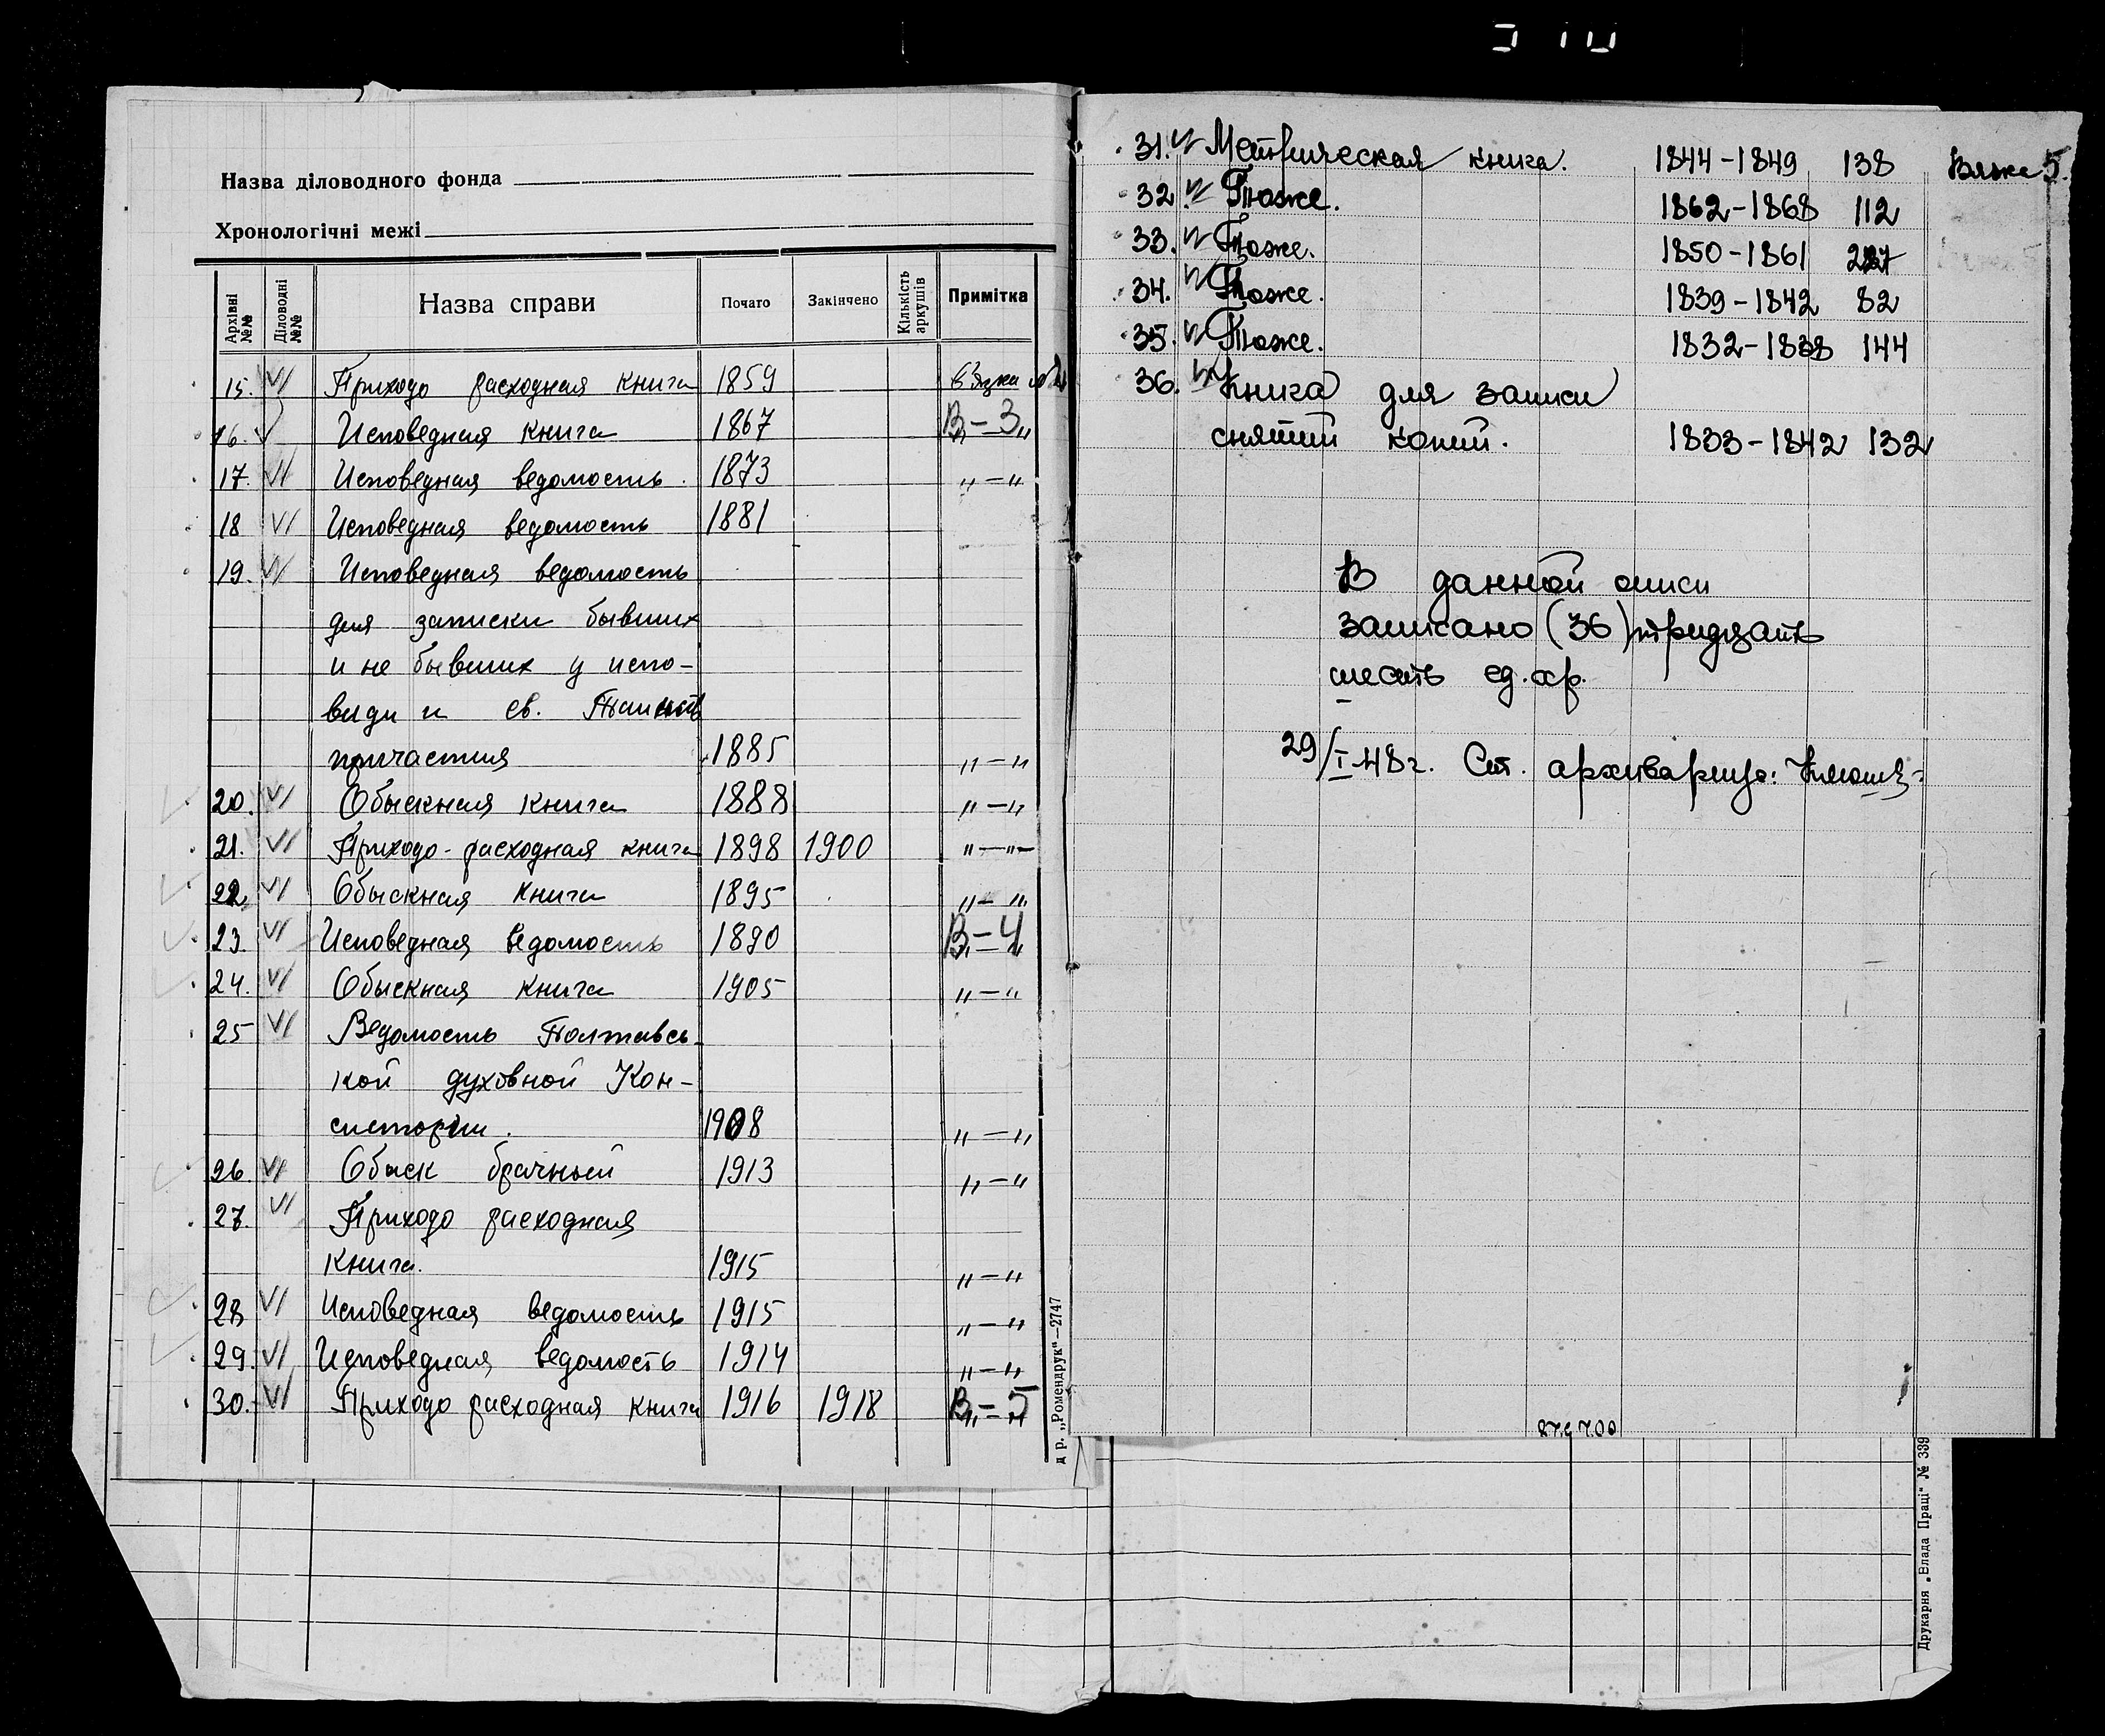 Назва діловодного фонда
Хронологічні межі
Архівні №№ Діловодні №№ Назва справи Почато Закінчено Кількість аркушів Примітка
15. Приходо расходная книга 1859 В'язка №
16. Исповедная книга 1867 В-3
17. Исповедная ведомость. 1873 "—"
18 Исповедная ведомость 1881
19. Исповедная ведомость
для записки бывших
и не бывших у испо-
веди и св. Таинств
причастия 1885 "—"
20. Обыскная книга 1888 "—"
21. Приходо-расходная книга 1898 1900 "—"
22 Обыскная книга 1895 "—"
23. Исповедная ведомость 1890 В-4
24. Обыскная книга 1905 "—"
25 Ведомость Полтавсь-
кой духовной Кон-
систории. 1908 "—"
26. Обыск брачный 1913 "—"
27. Приходо расходная
книга. 1915 "—"
28 Исповедная ведомость 1915 "—"
29. Исповедная ведомость 1914 "—"
30. Приходо расходная книга 1916 1918 В-5
др. „Ромендрук"—2747
31. Метрическая книга. 1844-1849 138 Вязке 5.
32. Тоже. 1862-1868 112
33. Тоже. 1850-1861
34. Тоже. 1839-1842 82
35. Тоже. 1832-1838 144
36. Книга для записи
снятий копий. 1833-1842 132
В данной описи
записано (36) тридцать
шесть ед. хр.
29/I-48 г. Ст. архивариус:
Друкарня „Влада Праці" № 339